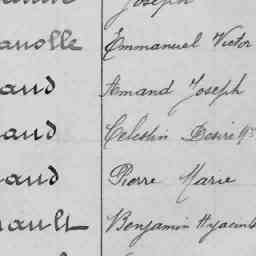 Joseph
anolle Emmanuel Victor
aud Amand Joseph
aud Celestin Desiré
aud Pierre Marie
ault Benjamin Hyacinth